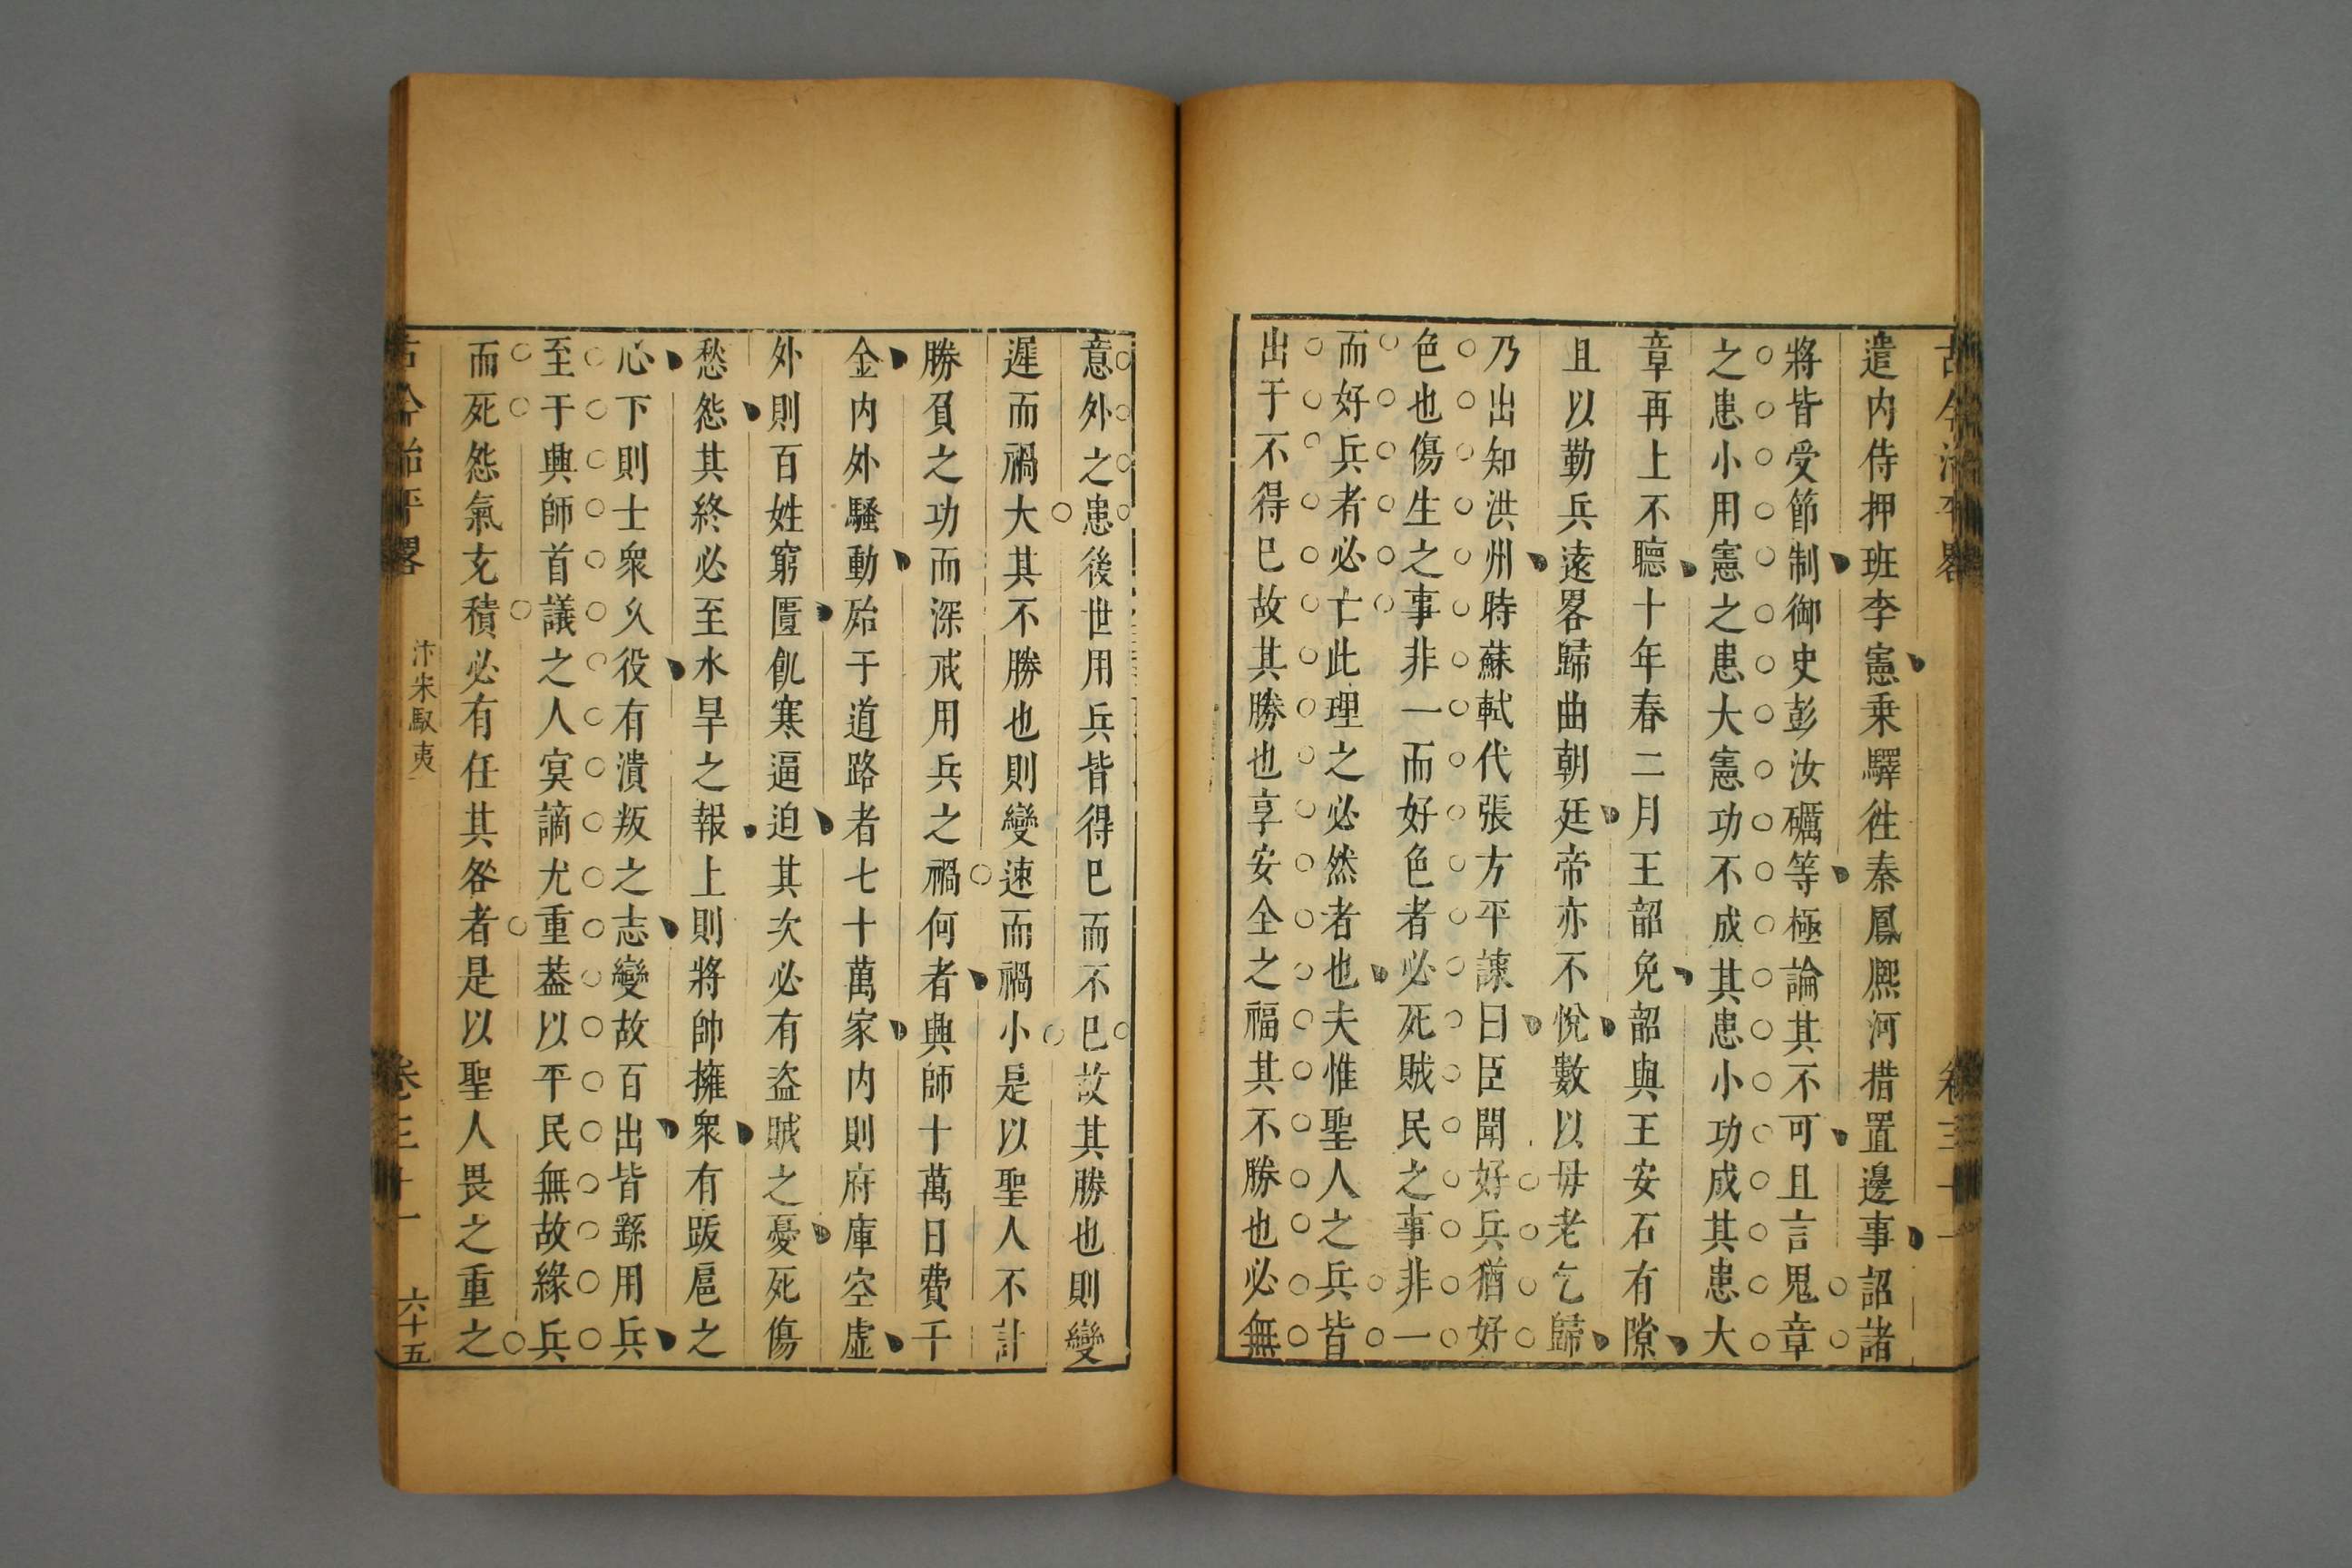 遣内侍押班李憲乗驛徃秦鳳熈河措置邊事詔諸
將皆受節制御史彭汝礪等極論其不可且言鬼章
之患小用憲之患大憲功不成其患小功成其患大
章再上不聽十年春二月王韶免韶與王安石有隙
且以勤兵遠畧歸曲朝廷帝亦不悅數以毋老乞歸
乃出知洪州時蘇軾代張方平諫曰臣聞好兵猶好
色也傷生之事非一而好色者必死賊民之事非一
而好兵者必亡此理之必然者也夫惟聖人之兵皆
出于不得巳故其勝也享安全之福其不勝也必無
意外之患後世用兵皆得巳而不巳故其勝也則變
遲而禍大其不勝也則變速而禍小是以聖人不計
勝負之功而深戒用兵之禍何者興師十萬日費千
金内外騷動殆于道路者七十萬家内則府庫空虛
外則百姓窮匱飢寒逼迫其次必有盗賊之憂死傷
愁怨其終必至水旱之報上則將帥擁衆有跋扈之
心下則士衆久役有潰叛之志變故百出皆繇用兵
至于興師首議之人冥謫尤重葢以平民無故緣兵
而死怨氣充積必有任其咎者是以聖人畏之重之
古今治平畧
汴宋馭夷
卷三十一
六十五